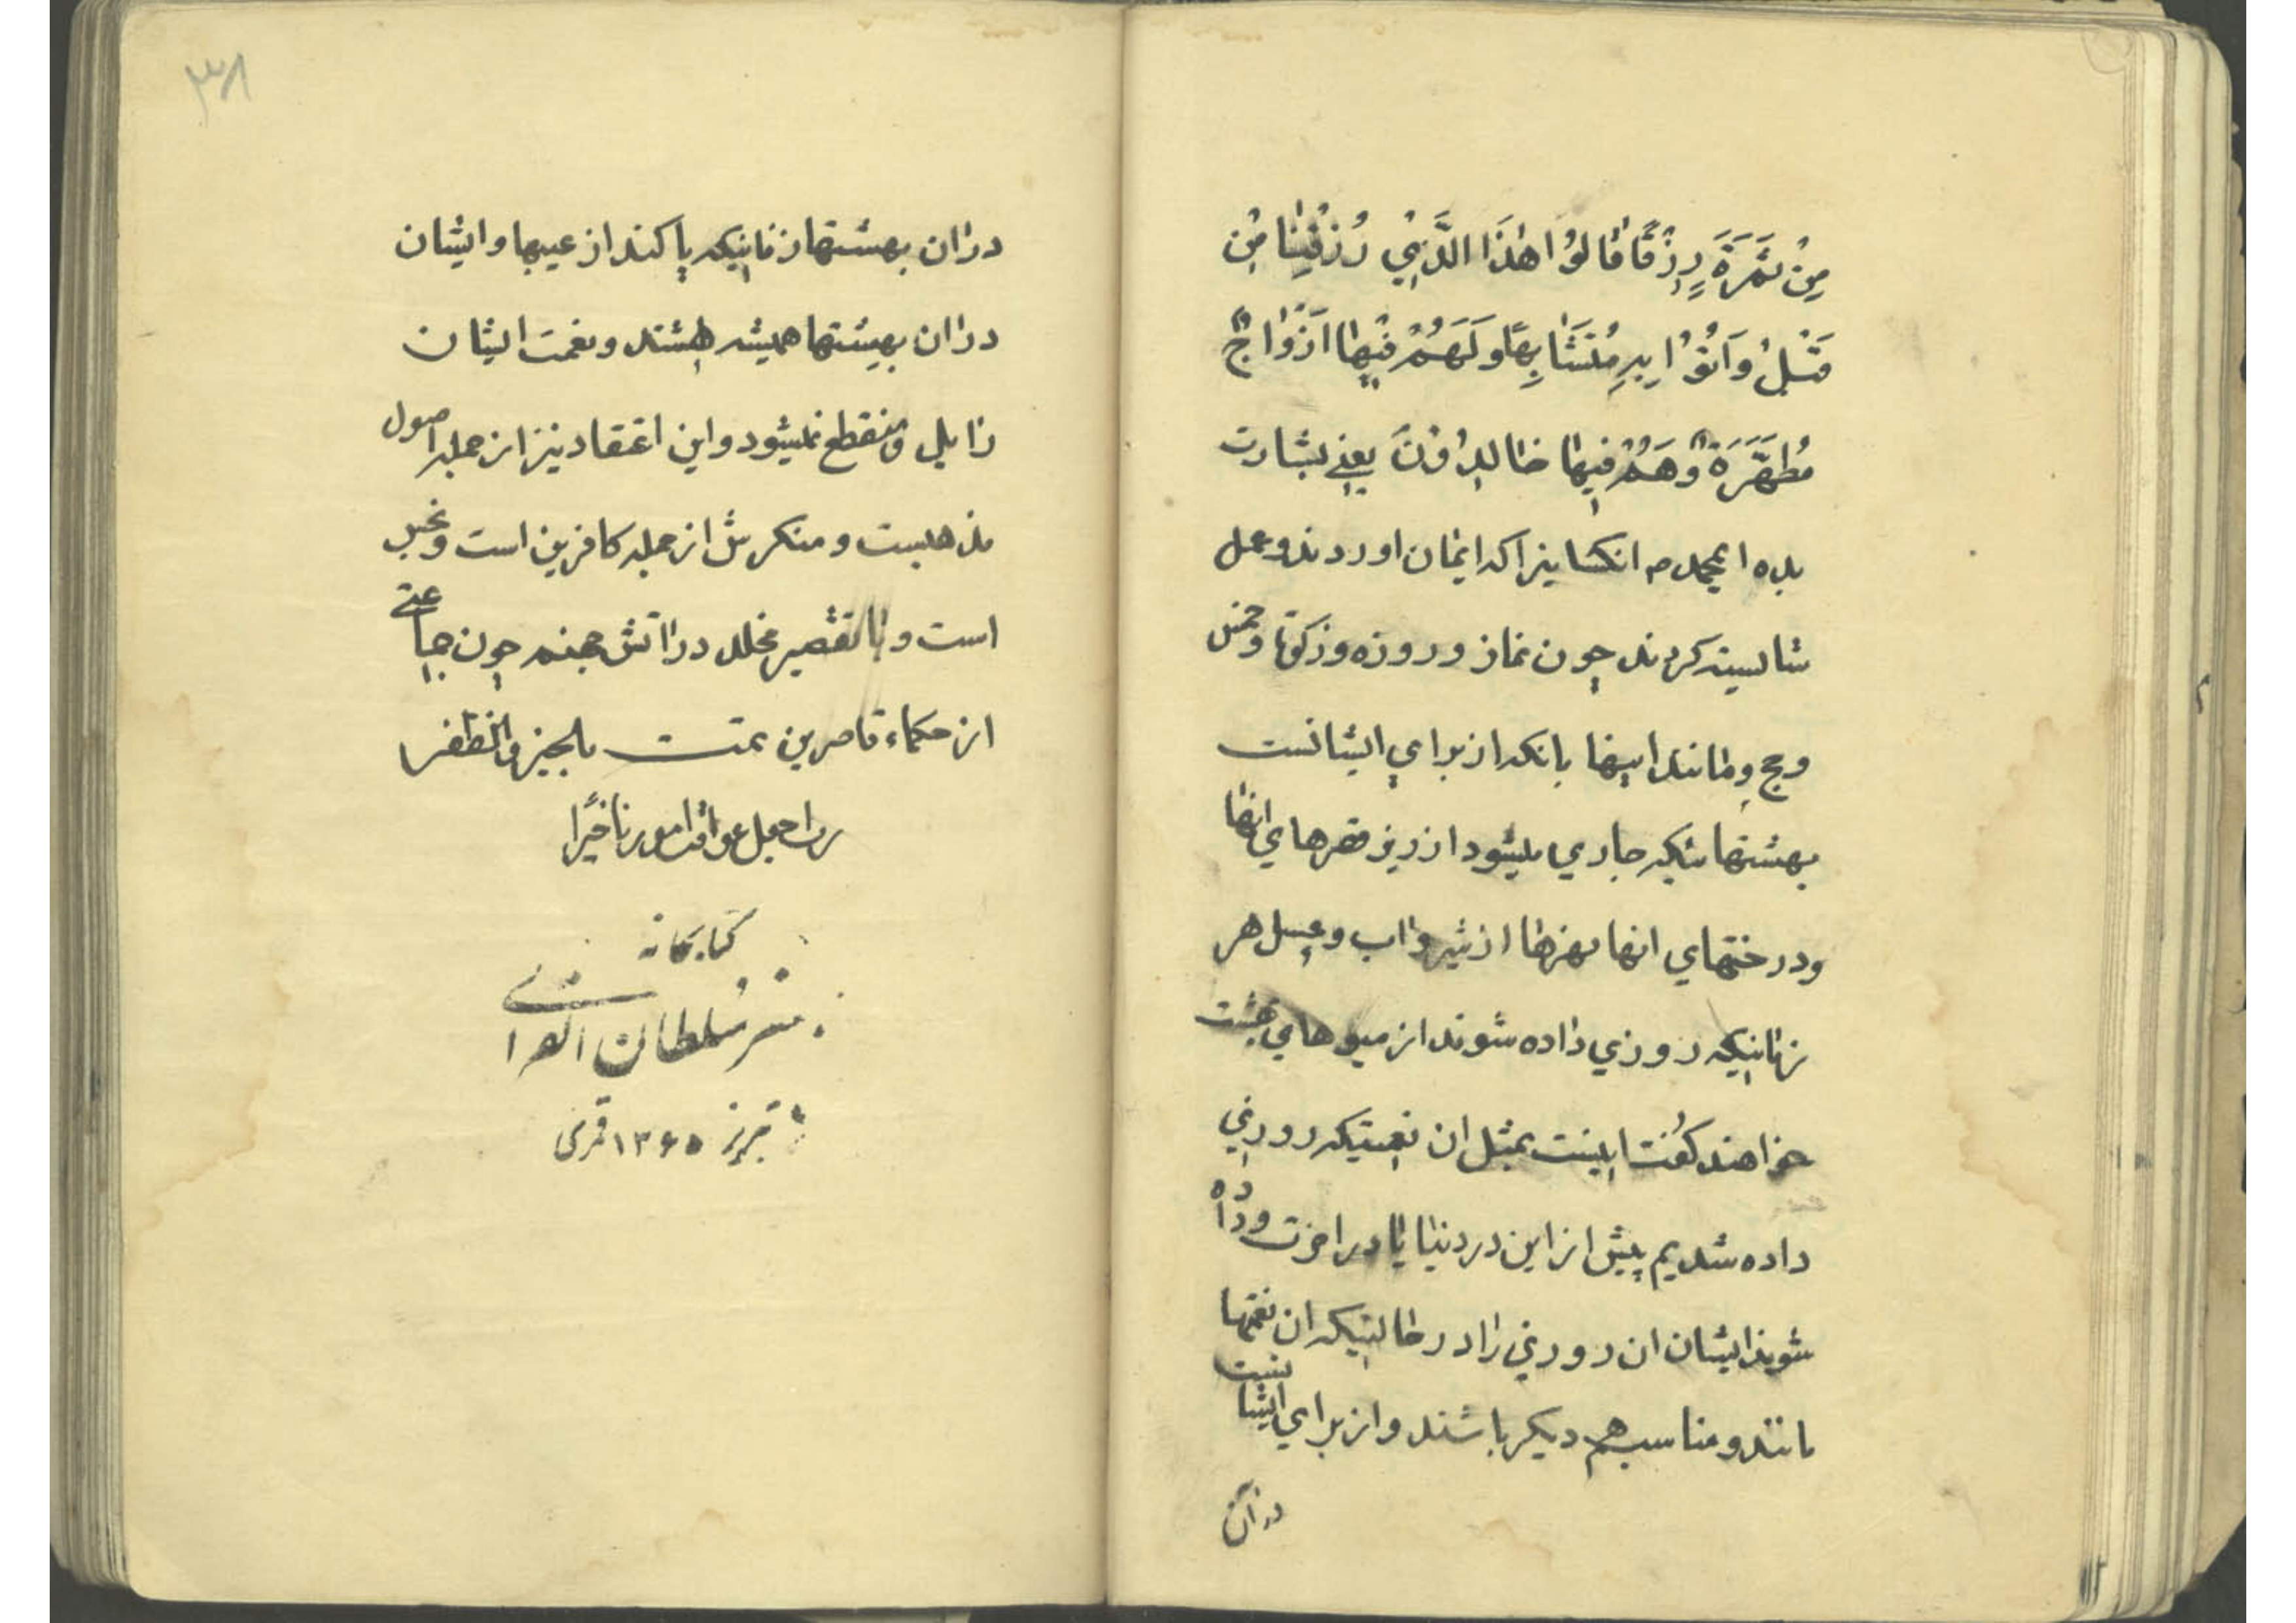 مِنْ ثَمَرَةٍ رِزْقًا قَالُوا هٰذَا الَّذِي رُزِقْنَا مِنْ
قَبْلُ وَاُتُوْا بِهِ مُتَشَابِهًا وَلَهُمْ فِيهَا اَزْوَاجٌ
مُطَهَّرَةٌ وَهُمْ فِيهَا خَالِدُونَ يعني بشارت
بده ايمحمد ص انكسانيرا كه ايمان اوردند وعمل
شايسته كردند چون نماز وروزه وزكوة وخمس
وحج ومانند اينها بانكه از براي ايشانست
بهشتهائيكه جاري ميشود از زير قصرهاي انها
ودرختهاي انها نهرها از شير واب وعسل هر
زمانيكه روزي داده شوند از ميوهاي بهشت
خواهند كفت اينست بمثل ان نعمتيكه روزي
داده شديم پيش از اين در دنيا يا در اخرت وداده
شوند ايشان ان روزي را در حالتيكه ان نعمتها
مانند ومناسب هم ديكر باشند واز براي ايشانست
در آن
۳۸
در ان بهشتها زنانيكه پاكند از عيبها وايشان
در ان بهشتها هميشه هستند ونعمت ايشان
زايل ومنقطع نميشود واين اعتقاد نيز از جمله اصول
مذهبست ومنكرش از جمله كافرين است ونجس
است وبالتقصير مخلد در اتش جهنم چون جماعتي
از حكماء قاصرين تمت بالخير والظفر
رب اجعل عواقب امورنا خيرا
كتابخانه
سلطان القرائي
تبريز ۱۳۶۵ قمري